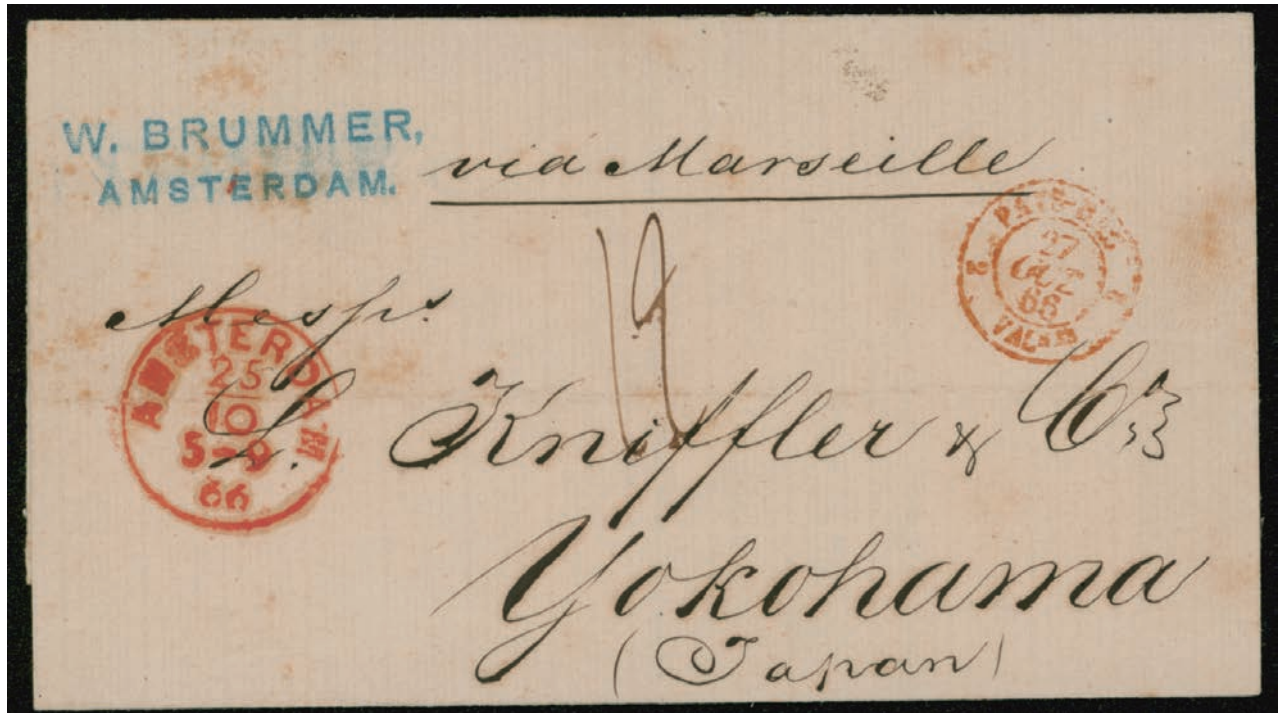 W. BRUMMER,
AMSTERDAM.
via Marseille
PAYS-BAS
27
OCT
66
2 2
VALnes
Messrs.
AMSTERDAM
25
10
5-9
66
L. Kniffler & Co
Yokohama
(Japan)